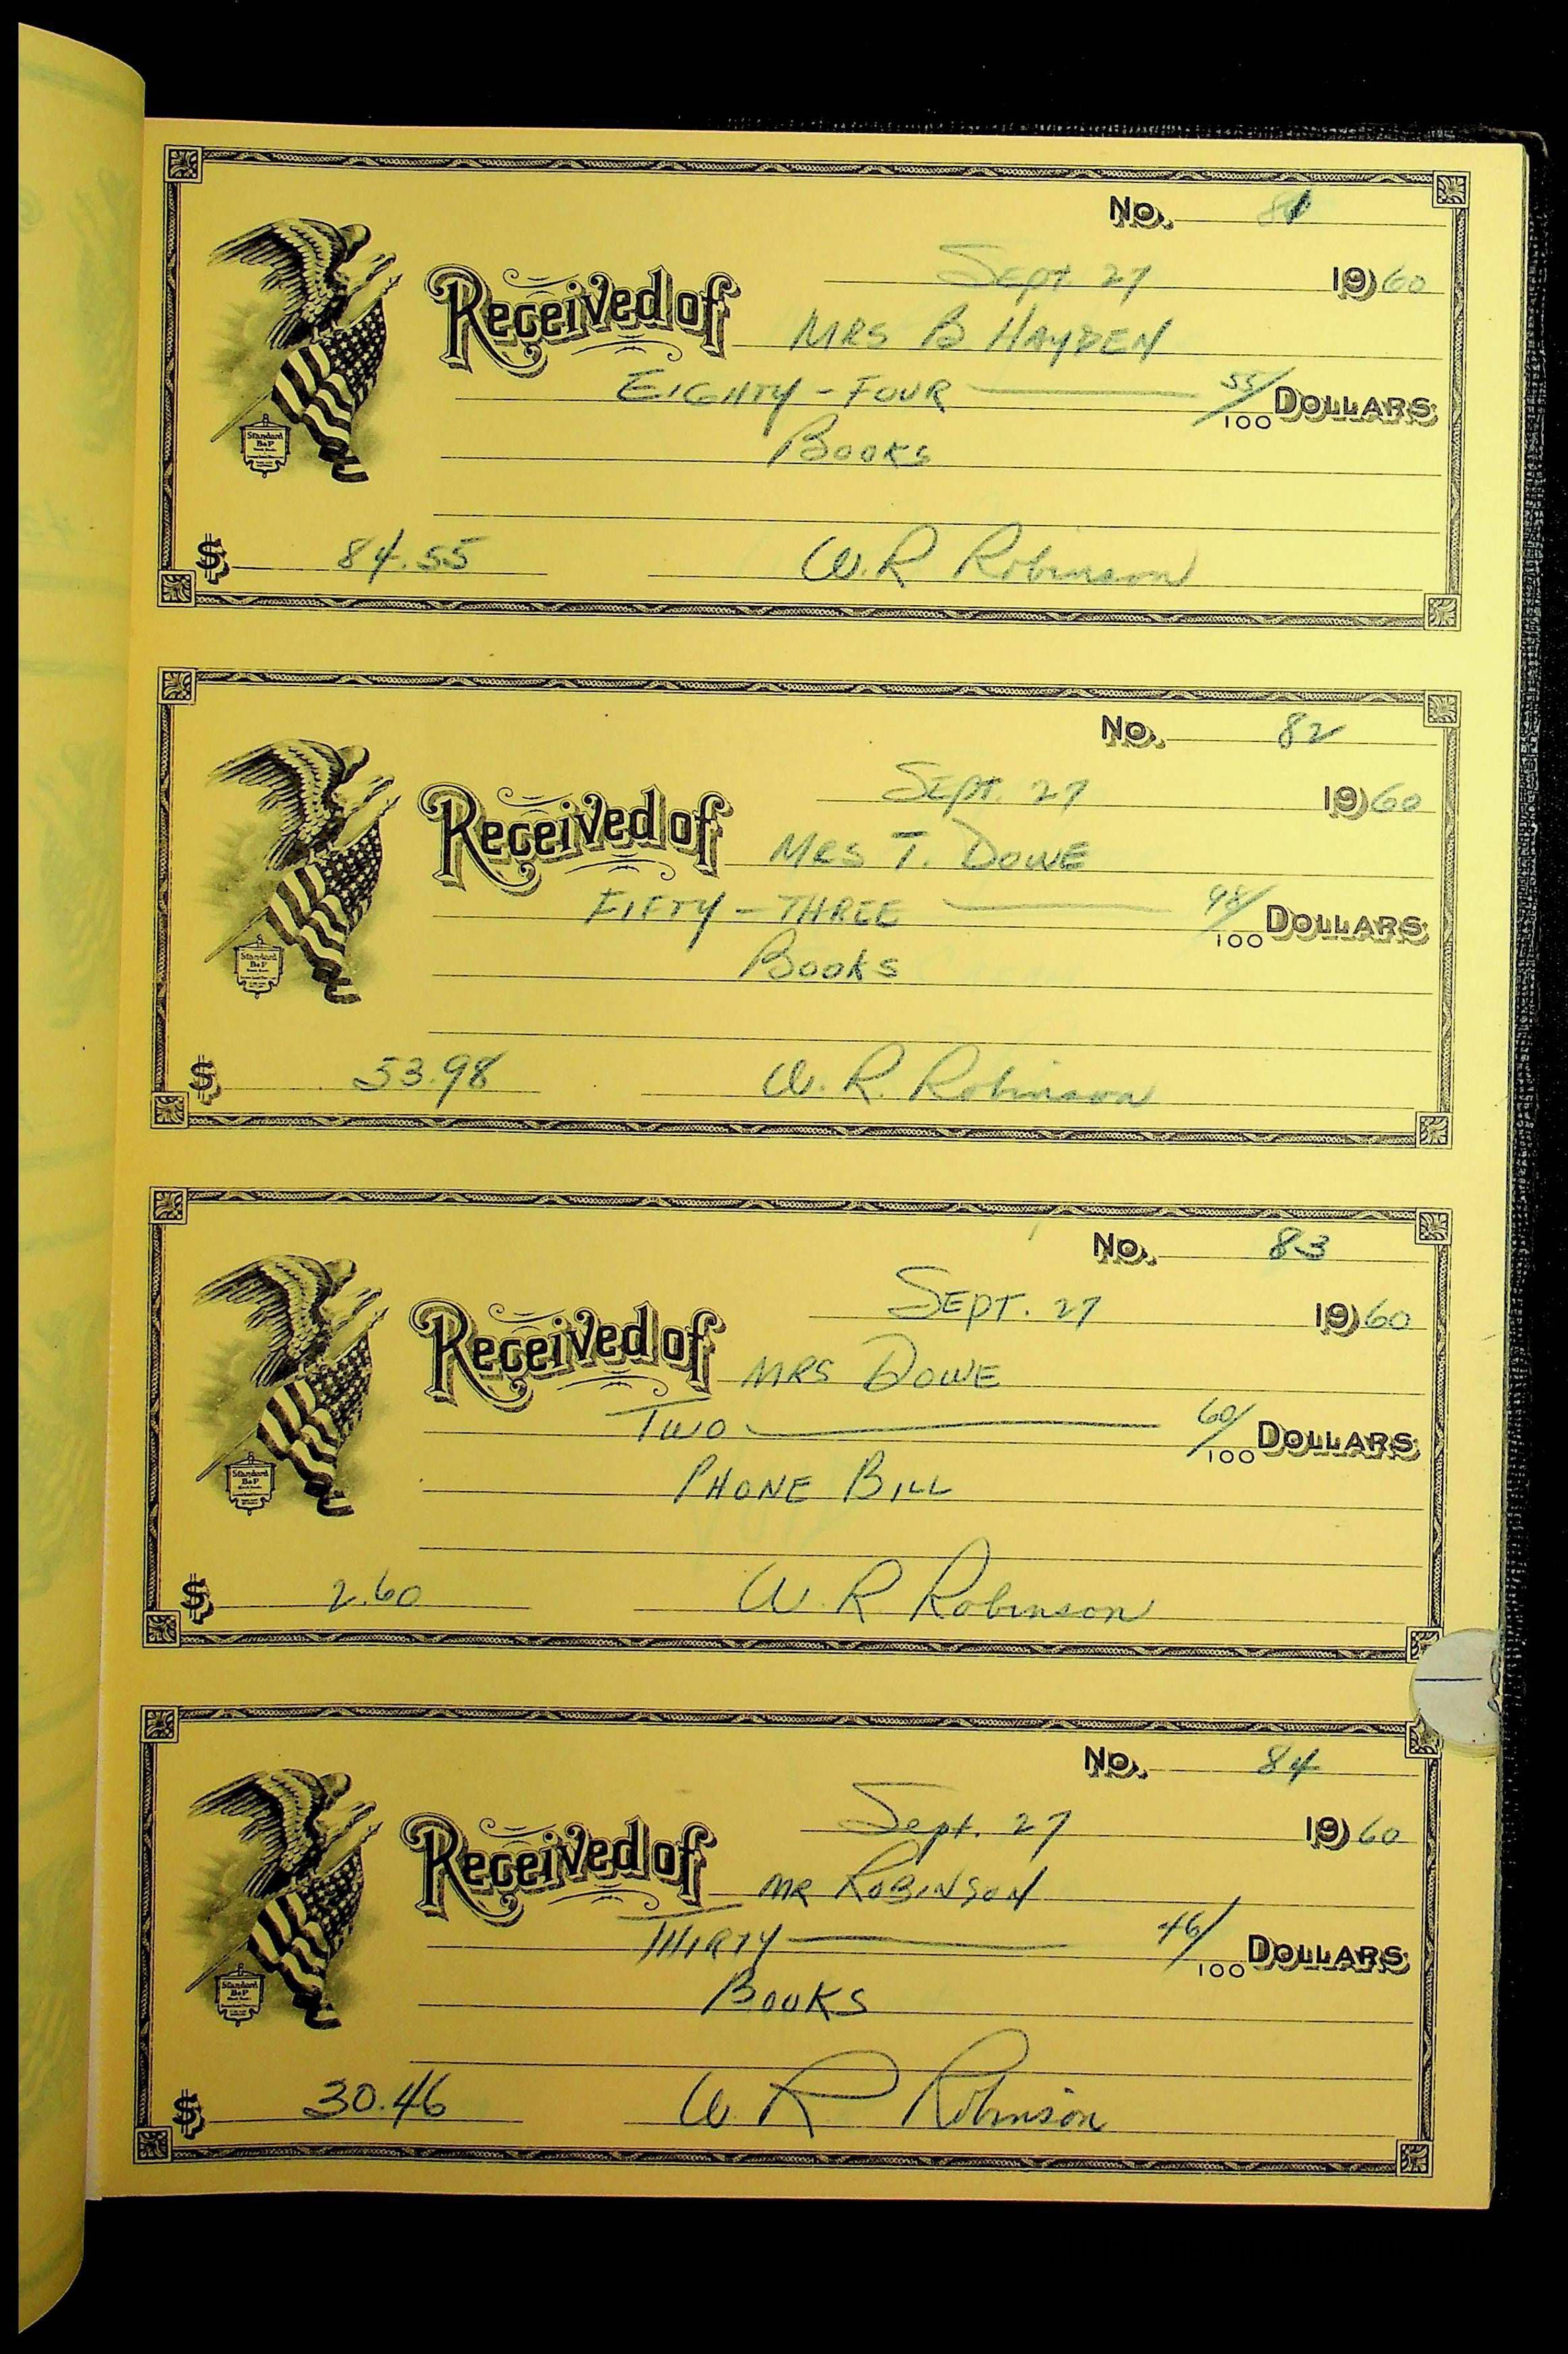 No. 81
Sept. 27 1960
Received of MRS B HAYDEN
EIGHTY-FOUR 55/100 DOLLARS
BOOKS
$ 84.55 W.R Robinson
Standard
B&P
No. 82
SEPT. 27 1960
Received of MRS T. DOWE
FIFTY-THREE 98/100 DOLLARS
BOOKS
$ 53.98 W. R. Robinson
Standard
B&P
No. 83
SEPT. 27 1960
Received of MRS DOWE
TWO 60/100 DOLLARS
PHONE BILL
$ 2.60 W. R Robinson
Standard
B&P
No. 84
Sept. 27 1960
Received of MR ROBINSON
THIRTY 46/100 DOLLARS
BOOKS
$ 30.46 W. R Robinson
Standard
B&P